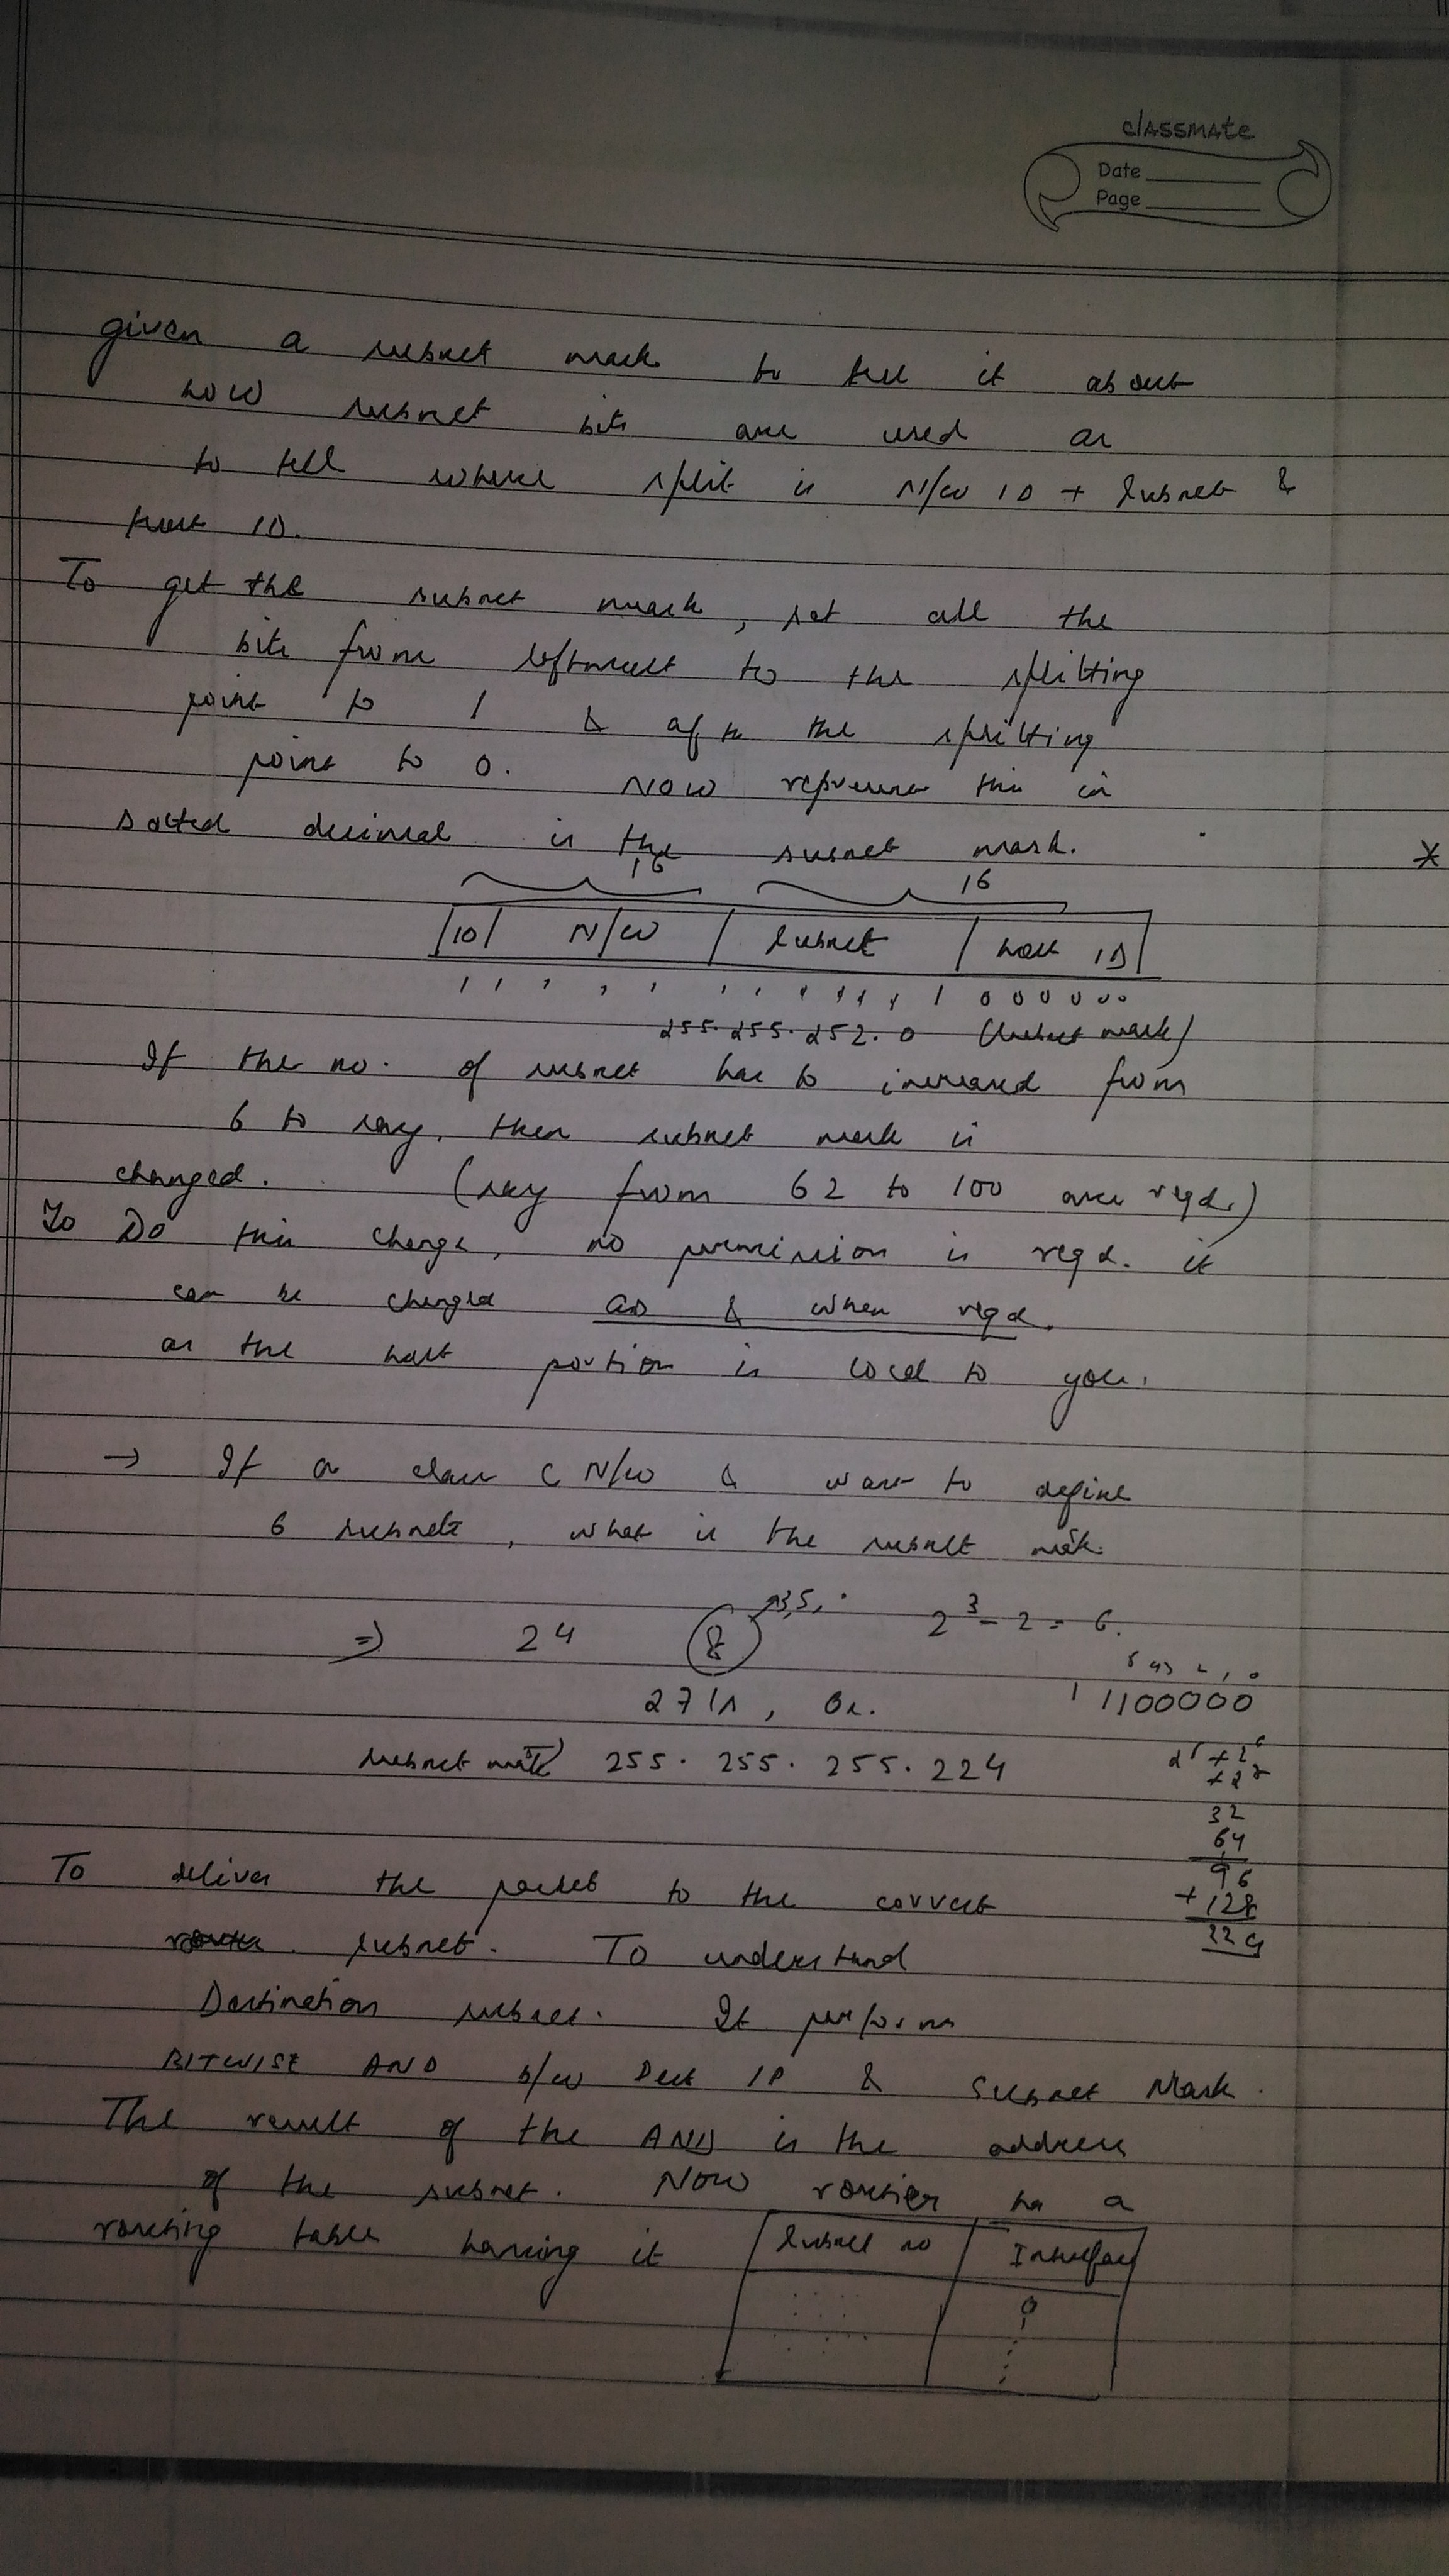 classmate
Date
Page
given a subnet mask to tell it about
how subnet bits are used as
to tell where split is N/W ID + Subnet &
host ID.
To get the subnet mask, set all the
bits from leftmost to the splitting
point to 1 & after the splitting
point to 0. Now represent this in
dotted decimal is the subnet mask.
16 16
10 N/W Subnet host ID
1 1 1 1 1 1 1 1 1 1 1 1 0 0 0 0 0 0
255.255.252.0 (Subnet mask)
If the no. of subnet has to increased from
6 to say, then subnet mask is
changed. (say from 62 to 100 are reqd.)
To Do this change, no permission is reqd. it
can be changed as & when reqd.
as the host portion is local to you.
→ If a class C N/W & want to define
6 subnets, what is the subnet mask.
⇒ 24 8 3,5, 2³ - 2 = 6.
27 1s, 0s. 11100000
subnet mask 255.255.255.224
32
64
96
+128
224
To deliver the packet to the correct
subnet. To understand
Destination subnet. It perform
BITWISE AND b/w Dest IP & Subnet Mask.
The result of the AND is the address
of the subnet. Now router has a
routing table having it
Subnet no Interface
0
1